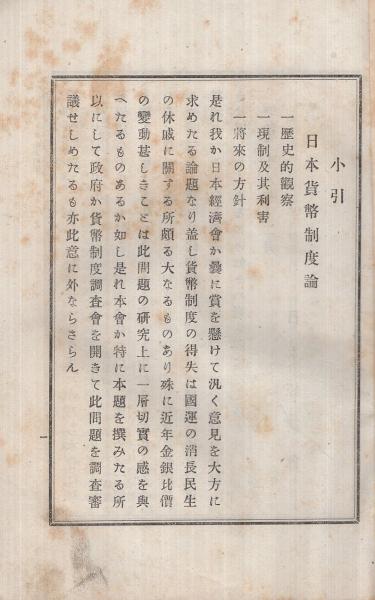 小引
日本貨幣制度論
一歴史的觀察
一現制及其利害
一將來の方針
是れ我か日本經濟會か曩に賞を懸けて汎く意見を大方に
求めたる論題なり蓋し貨幣制度の得失は國運の消長民生
の休戚に關する所頗る大なるものあり殊に近年金銀比價
の變動甚しきことは此問題の研究上に一層切實の感を與
へたるものあるか如し是れ本會か特に本題を撰みたる所
以にして政府か貨幣制度調査會を開きて此問題を調査審
議せしめたるも亦此意に外ならさらん
一